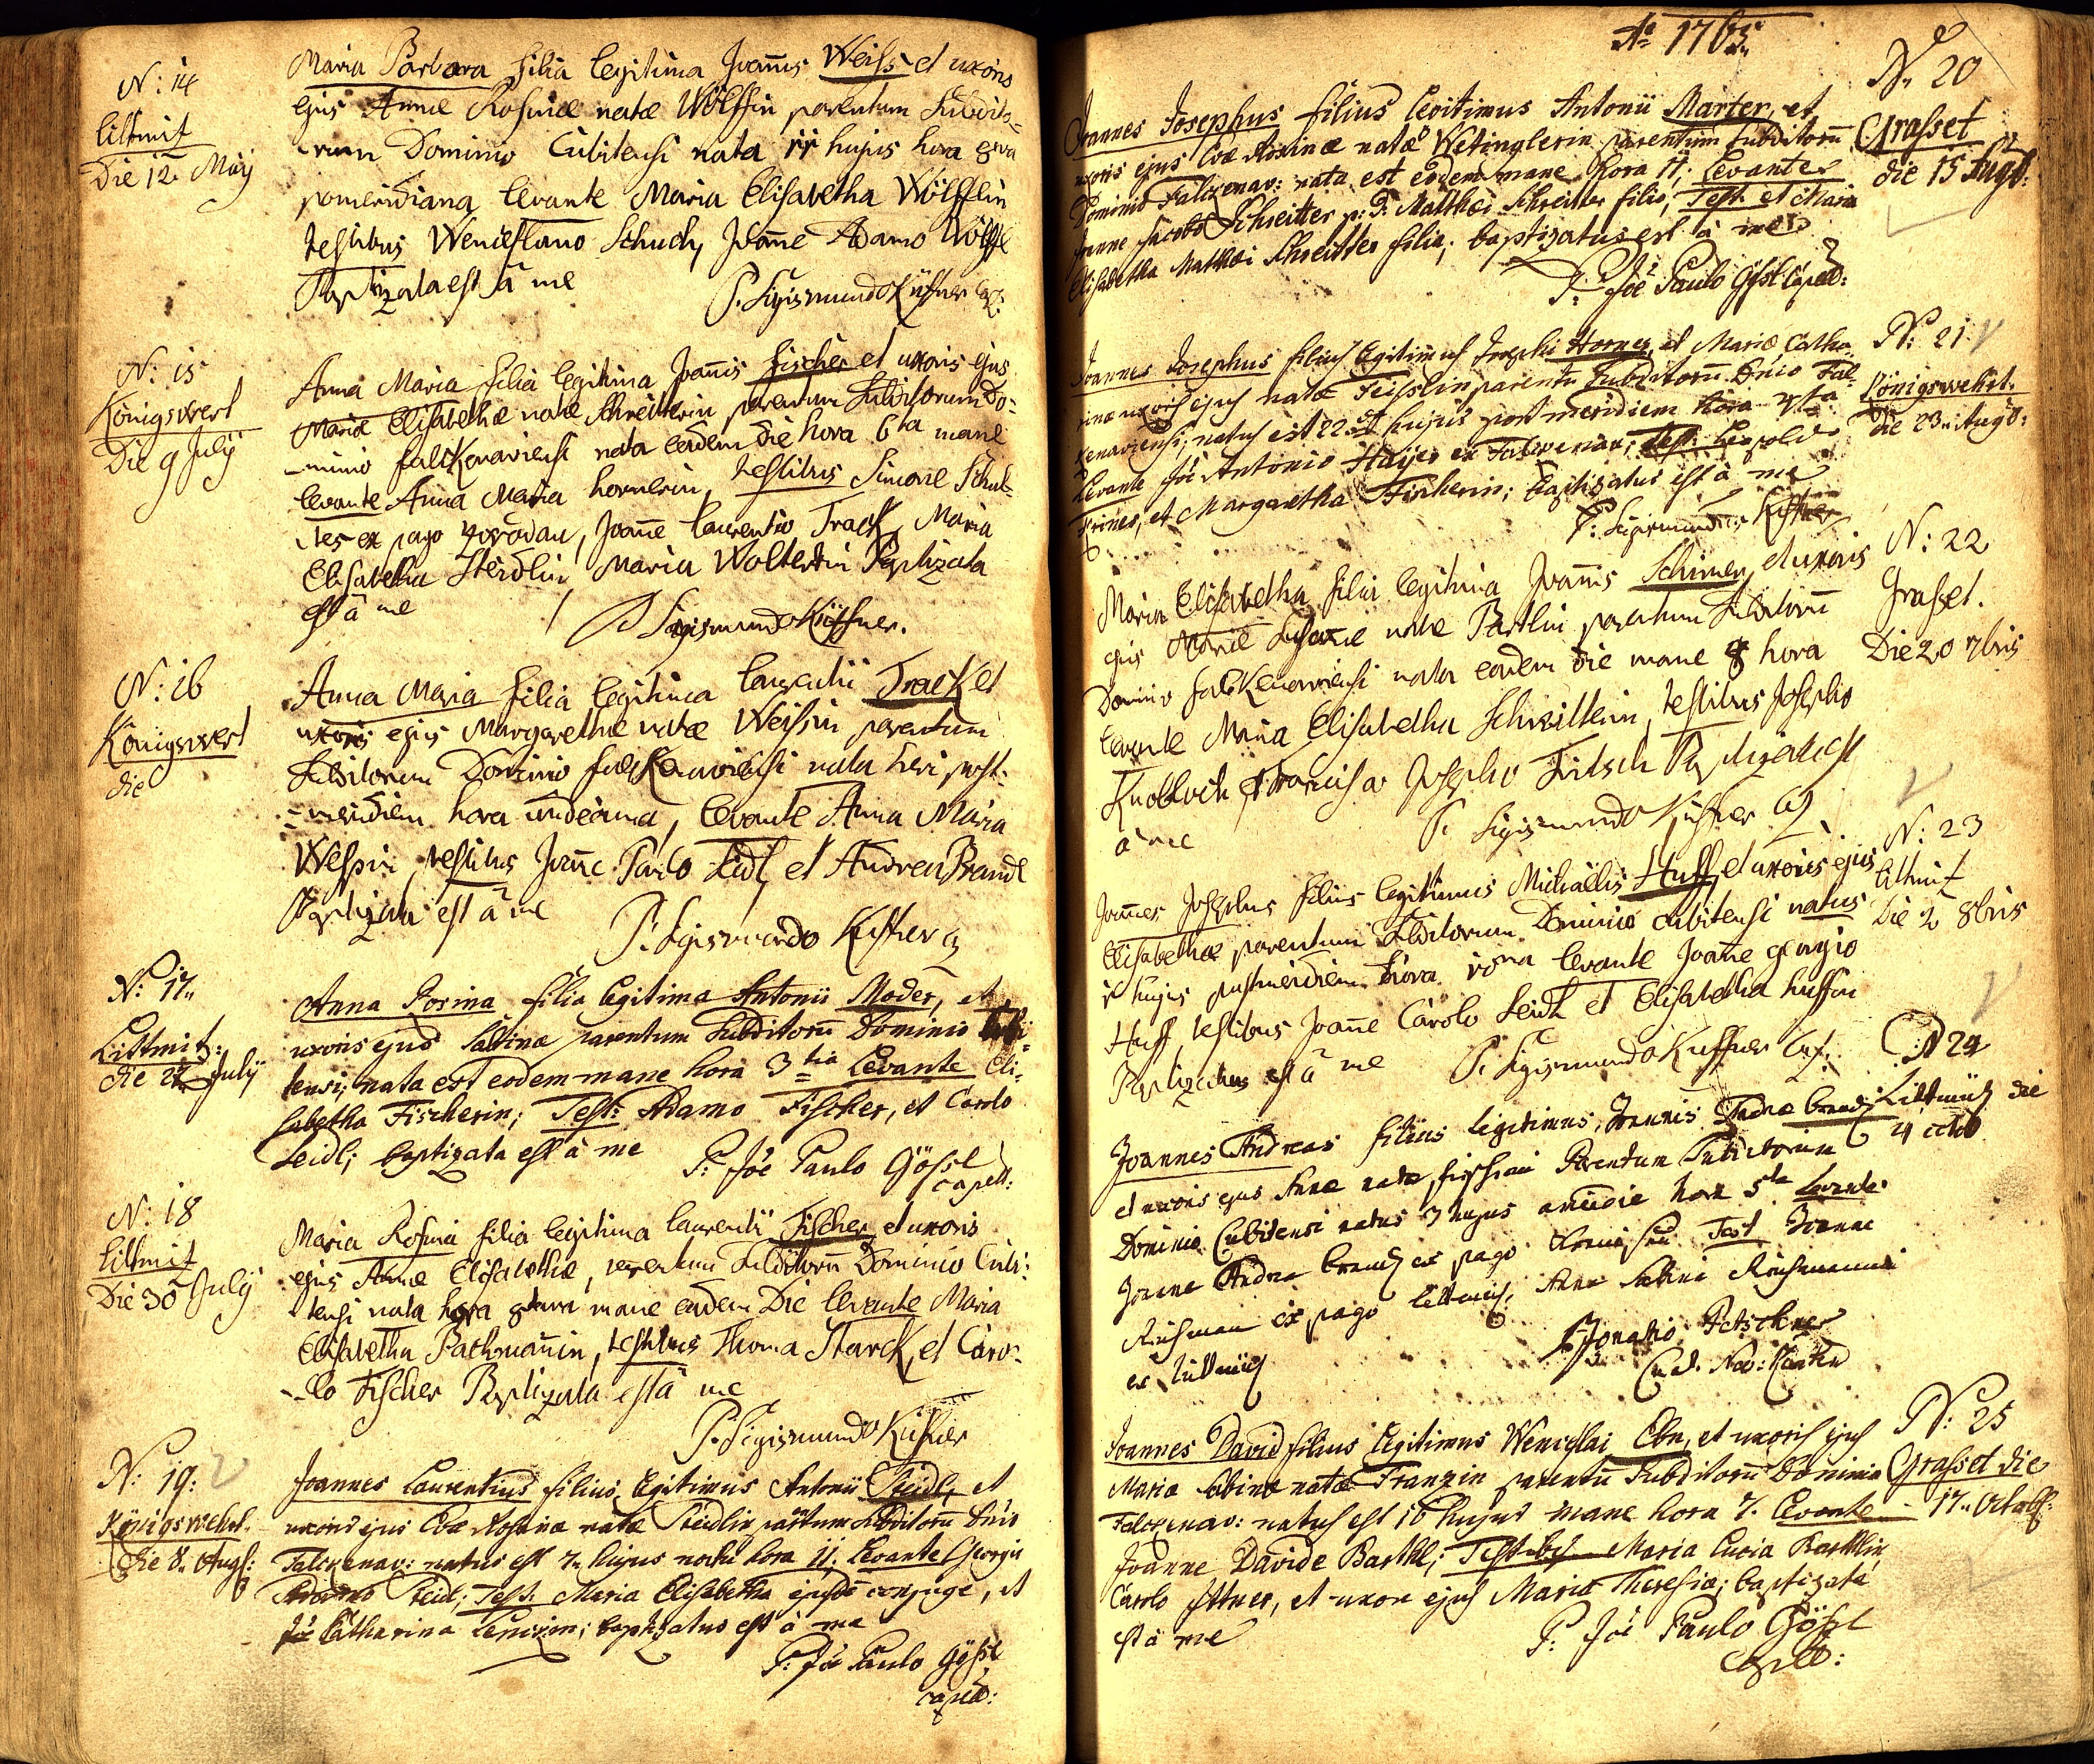 N: 14
Littmitz
Die 12 Maij
Maria Barbara filia legitima Joannis Weiss et uxoris
ejus Annae Rosinae natae Wölffin parentum Subdito-
-rum Dominio Cubitensi nata 11 hujus hora 8va
pomeridiana levante Maria Elisabetha Wölfflin
testibus Wenceslauo Schuch, Joanne Adamo Wölffl
Baptizata est à me
P. Sigismundo Küffner Cap:
N: 15
Königswert
Die 9 Julij
Anna Maria filia legitima Joannis Fischer et uxoris ejus
Mariae Elisabethae natae Schreitterin parentum Subditorum Do-
-minio falkenaviensi nata eadem die hora 6ta mane
levante Anna Maria hornerin, testibus Simone Schul-
-tes ex pago, Joanne Laurentio Track, Maria
Elisabetha Steidlin, Maria Baptizata
est à me
P Sigismundo Küffner.
N: 16
Königswert
die
Anna Maria filia legitima Laurentii Track et
uxoris ejus Margarethae natae Weissin parentum
Subditorum Dominio falkenaviensi nata heri post-
-meridiem hora undecima, levante Anna Maria
Weissin, testibus Joanne Paulo Leidl, et Andrea Brandl
Baptizata est à me
P. Sigismundo Küffner
N: 17
Littmitz:
die Julij
Anna Rosina filia legitima Antonii Moder, et
uxoris ejus Sabinae parentum Subditorum Dominio
tensi; nata est eodem mane hora 3tia Levante Eli-
sabetha Fischerin; Test: Adamo Fischer, et Carolo
Leidl; baptizata est à me
P: Joe Paulo Gössl
capell:
N: 18
Littmitz
Die 30 Julij
Maria Rosina filia legitima Laurentii Fischer, et uxoris
ejus Annae Elisabethae, parentum Subditorum Dominio Cubi-
-tensi nata hora 8tava mane eadem Die levante Maria
Elisabetha Pachmannin, testibus Thoma Starck, et Caro-
-lo Fischer Baptizata est à me
P: Sigismundo Küffner
N: 19:
Königswehrt.
Die 8. Augs:
Joannes Laurentius filius legitimus Antonii Steidl, et
uxoris ejus Evae Rosinae natae Steidlin parentum Subditorum Dnio
Falckenav: natus est 7. hujus noctu hora 11. Levante Georgio
Steidl; Test. Maria Elisabetha ejusdem conjuge, et
Catharina; baptizatus est à me
P: Joe Paulo Gössl
capell:
Ao 1765
N. 20
Grasset
die 15 Augst:
Joannes Josephus filius legitimus Antonii Marter, et
uxoris ejus Evae natae Wetinglerin parentum Subditorum
Dominio Falckenav: nata est eodem mane hora 11. Levante
Joanne Jacobo Schreitter p: D. Matthaei Schreitter filio; Test. et Maria
Elisabetha Matthaei Schreitter filia; baptizatus est à me
P: Joe Paulo Gössl Capell:
N: 21
Königswehrt.
Die 23. Augs:
Joannes Josephus filius legitimus Josephi Horner, et Mariae Catha-
rinae uxoris ejus natae Feisslin parentum Subditorum Dnio Fal-
kenaviensi; natus est 22 hujus post meridiem hora 4ta
Levante Joe Antonio ex Falckenav; Test: Leopold
et Margaretha Fischerin; baptizatus est à me
P: Sigismundo Küffner
N: 22
Grasset.
Die 20 7bris
Maria Elisabetha filia legitima Joannis Schimer, et uxoris
ejus Mariae Susanae natae Bartlin parentum Subditorum
Dominio falkenaviensi nata eadem die mane 8 hora
levante Maria Elisabetha Schreitterin, testibus Josepho
Knobloch et Francisco Josepho Fritsch Baptizata est
à me
P. Sigismundo Küffner Cap
N: 23
Littmitz
Die 2 8bris
Joannes Josephus filius legitimus Michaëlis Huff, et uxoris ejus
Elisabethae parentum Subditorum Dominio cubitensi natus
1 hujus postmeridiem hora 10ma levante Joanne georgio
Huff, testibus Joanne Carolo Leidl et Elisabetha huffin
Baptizatus est à me
P. Sigismundo Küffner Cap:
N 24
Littmitz die
4 octob
Joannes Andreas filius legitimus, Joannis Andreae
et uxoris ejus Annae natae Parentum Subditorum
Dominio Cubitensi natus 3 hujus hora 5ta Levante
Joanne Andrea ex pago Test Joanne
ex pago Littmitz, Anna Sabina
ex Littmitz
Ignatio
N: 25
Grasset die
17. Octobs:
Joannes David filius legitimus Wenceslai Ebn, et uxoris ejus
Maria Sabinae natae Franzin parentum Subditorum Dominio
Falckenav: natus est 16 hujus mane hora 7. Levante
Joanne Davide Barthl; Testibus Maria Lucia Barthlin
Carolo Ittner, et uxore ejus Maria Theresia; baptizatus
est à me
P: Joe Paulo Gössl
Capell: